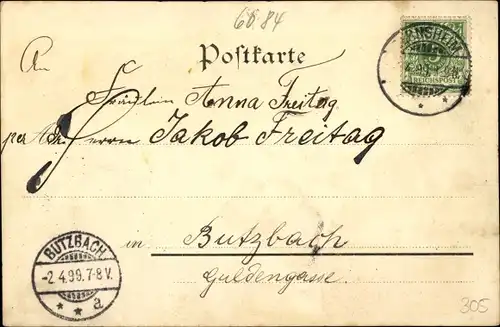 6884
Postkarte
An
Fräulein Anna Freitag
per Adr. Herrn Jakob Freitag
in Butzbach
Guldengasse.
REICHSPOST
BUTZBACH
-2.4.99.7-8V.
* * a
305